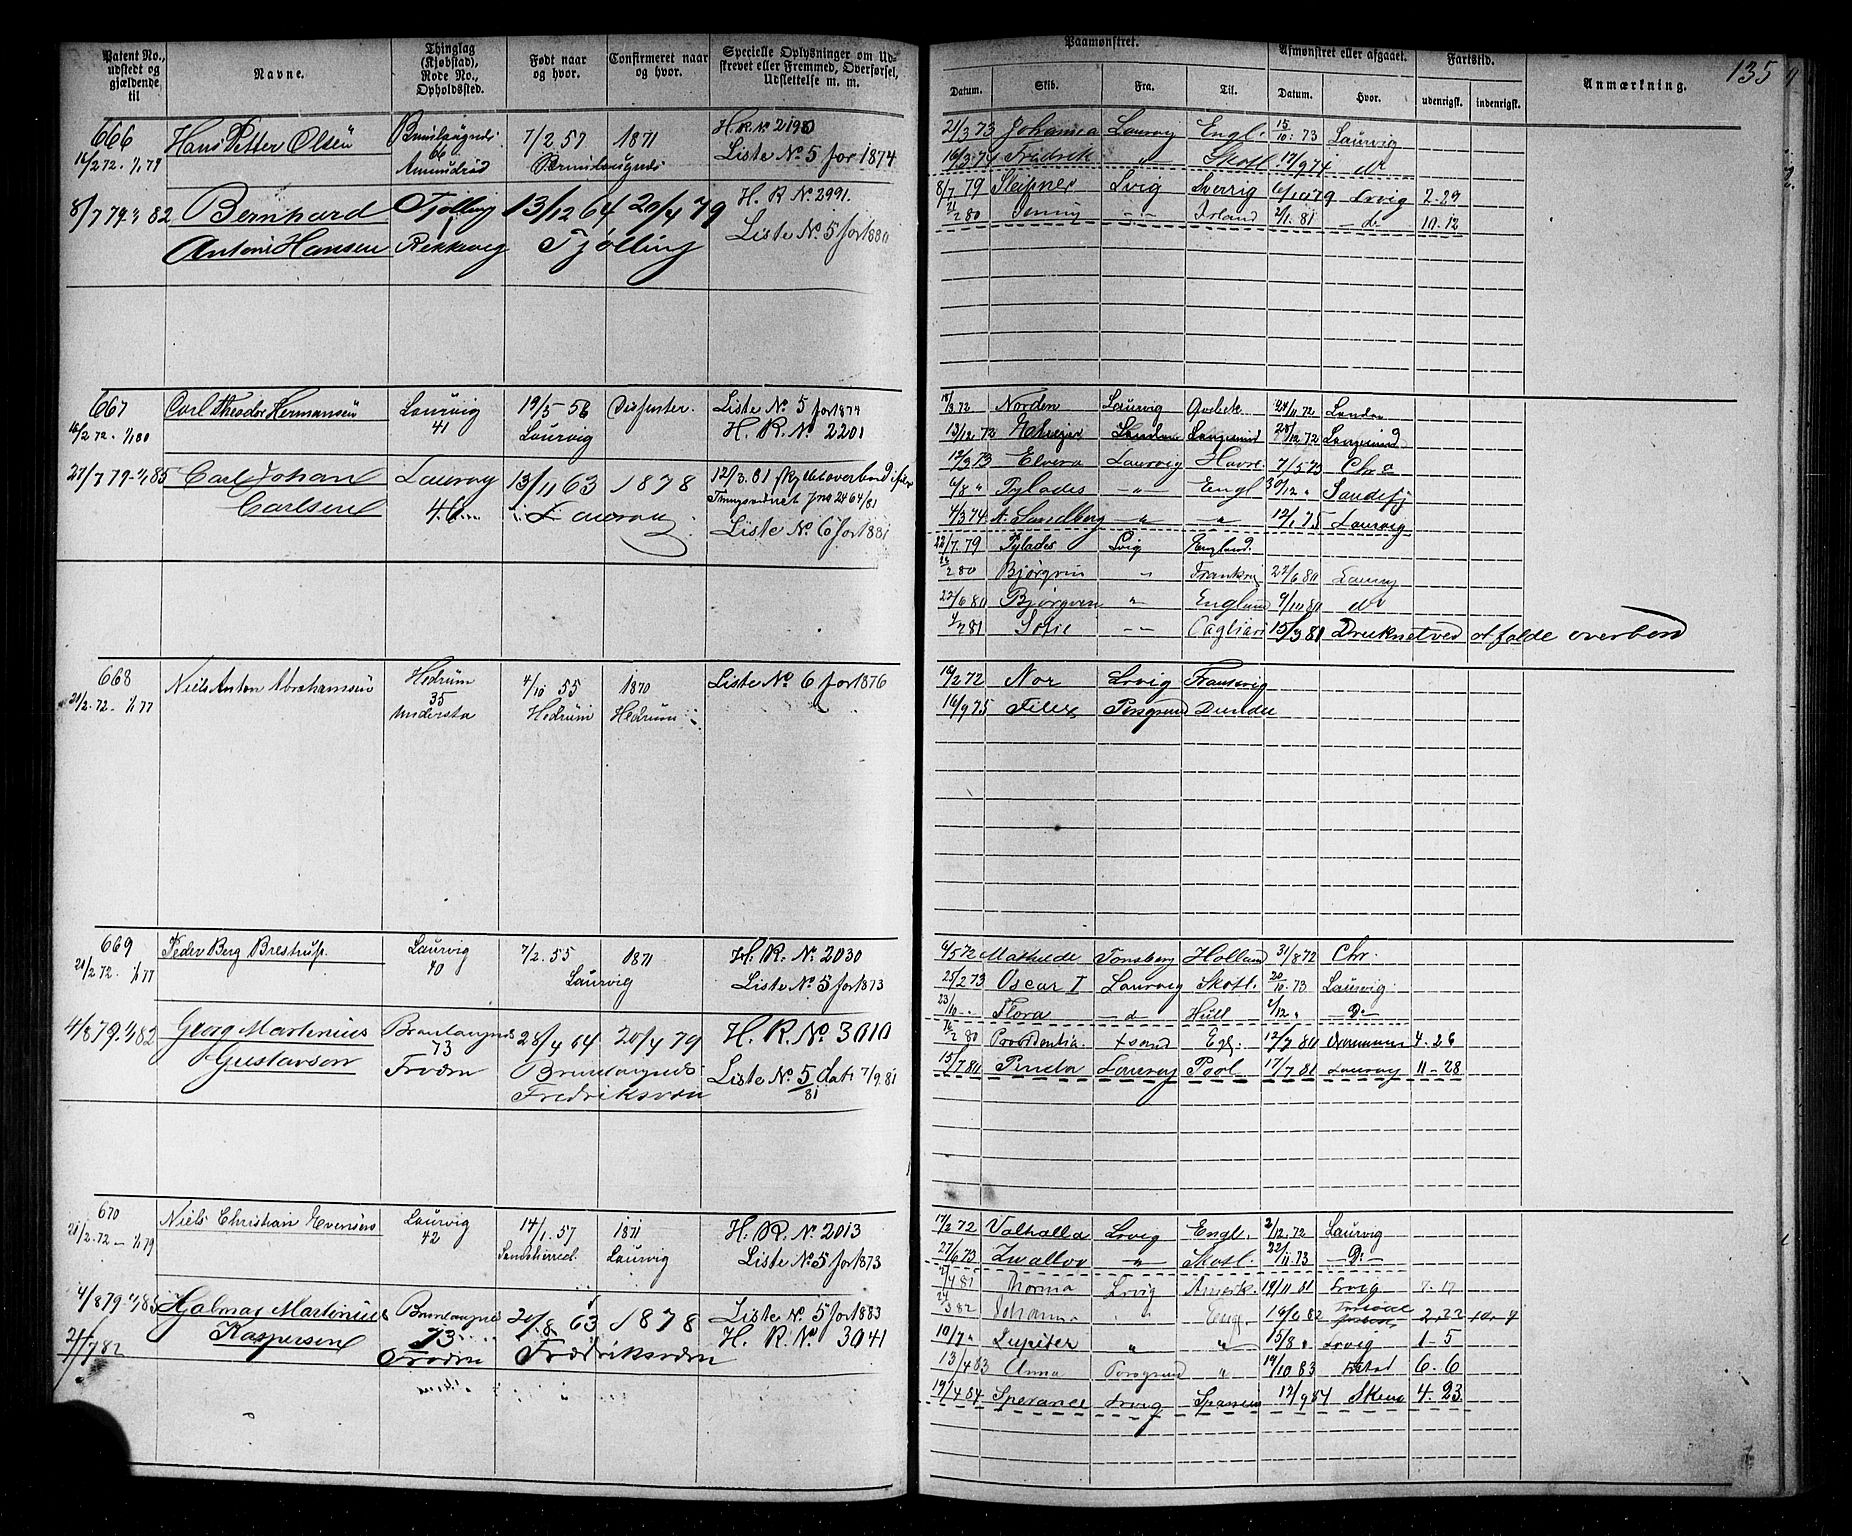 135
Patent No., udstedt og gjældende til
Navne.
Thinglag (Kjøbstad), Rode No., Opholdssted.
Født naar og hvor.
Confirmeret naar og hvor.
Specielle Oplysninger om Udskrevet eller Fremmed, Overførsel, Udslettelse m. m.
Paamønstret.
Afmønstret eller afgaaet.
Fartstid.
Anmærkning.
Datum. Skib. Fra. Til. Datum. Hvor. udenrigsk. indenrigsk.
666 Hans Petter Olsen 7/2 57 1871 H. R. No 2190
66 Liste No. 5 for 1874
Amundrød
21/3 73 Johanna Laurvig Engl. 15/10 73 Laurvig
16/3 74 Fridrik " Skotl. 17/9 74 do
8/7 79 3/82 Bernhard Tjølling 13/12 64 20/4 79 H. R No. 2991.
Antoni Hansen Rekkevig Tjølling Liste No. 5 for 1880
8/7 79 Sleipner Lvig Sverrig 6/10 79 Lrvig 2-29
21/2 80 Jenny -"- Irland 2/1 81 do 10-12
667 Carl Theodor Hermansen Laurvig 19/5 56 Dissenter. Liste No 5 for 1874
16/2 72. 1/1 80 41 Laurvig H. R. No 2201
18/3 72 Norden Laurvig Qvebek 24/11 72 London
13/12 72 London Langesund 28/12 72 Langesund
12/3 73 Elvira Laurvig Havre 7/5 73 Chra
6/8 " Pylades -"- Engl 30/12 " Sandefj
4/3 74 A. Sandberg " " 12/1 75 Laurvig
27/7 79 1/1 85 Carl Johan Laurvig 13/11 63 1878 12/3. 81 skyllet overbord
Carlsen 46 Laurvig Liste No. 6 for 1881
22/7. 79 Pylades Lvig England
26/2 80 Bjørgvin " Frankrig 22/6 80 Laurvig
22/6 80 Bjørgvin " England 9/10 80 do
Sofie -"- Cagliari 15/3 81 Druknet ved at falde overbord
668 Niels Anton Abrahamsen Hedrum 4/10 55 1870 Liste No. 6 for 1876
21/2. 72- 1/1 77 35 Hedrum Hedrum
Understa
16/2 72 Nor Lrvig Frankrig
16/9 75 Porsgrund Dundee
669 Peder Berg Brestrup. Laurvig 7/2. 55 1871 H. R. No. 2030
21/2 72. 1/1 77 40 Laurvig Liste No. 5 for 1873
6/5 72 Mathilde Tønsberg Holland 31/8 72 Chr.
25/2 73 Oscar I Laurvig Skotl. 20/10. 73 Laurvig
23/10 " Flora - d Hull 2/12 " - Do -
4/8 79. 1/1 82 Georg Martinius Brunlaugnes 28/4 64 20/4 79 H. R. No. 3010
Gustavson 73 Brunlaugnes Liste No. 5/81 dat. 7/9. 81
Fredriksværn
16/2 80 Providentia Egl. 12/7 80 4-26
15/7 80 Laurvig Pool 17/7 81 Laurvig 11-28
670 Niels Christian Evensen Laurvig 14/1. 57 1871 H. R. No. 2013
21/2. 72 - 1/1 79 42 Sandeherred. Laurvig Liste No. 5 for 1873
17/2 72 Valhalla Lrvig Engl. 2/12. 72 Laurvig
27/6 73 " Skotl. 22/11. 73 - Do -
4/8 79 1/1 85 Hjalmar Martinius Brunlaugnes 20/8 63 1878 Liste No. 5 for 1883
Kaspersen 73 Fredriksværn H. R. No 3041
Norma Lrvig Amerik. 19/11 81 Lrvig 7-17
24/3 82 Johanna " Engl. 16/6 82 2-22
10/7 " Jupiter " " 15/8 " Lrvig 1-5
13/4 83 Anna Porsgrund " 19/10 83 6-6
19/4 84 Sperance Lrvig Spanien 12/9 84 Skien 4.23